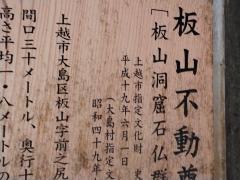 板山不動尊
「板山洞窟石仏群
上越市指定文化財 史
平成十九年六月一日
(大島村指定文
昭和四十九年
上越市大島区板山字前之尻
間口三十メートル、奥行十
高さ平均一・八メートルの